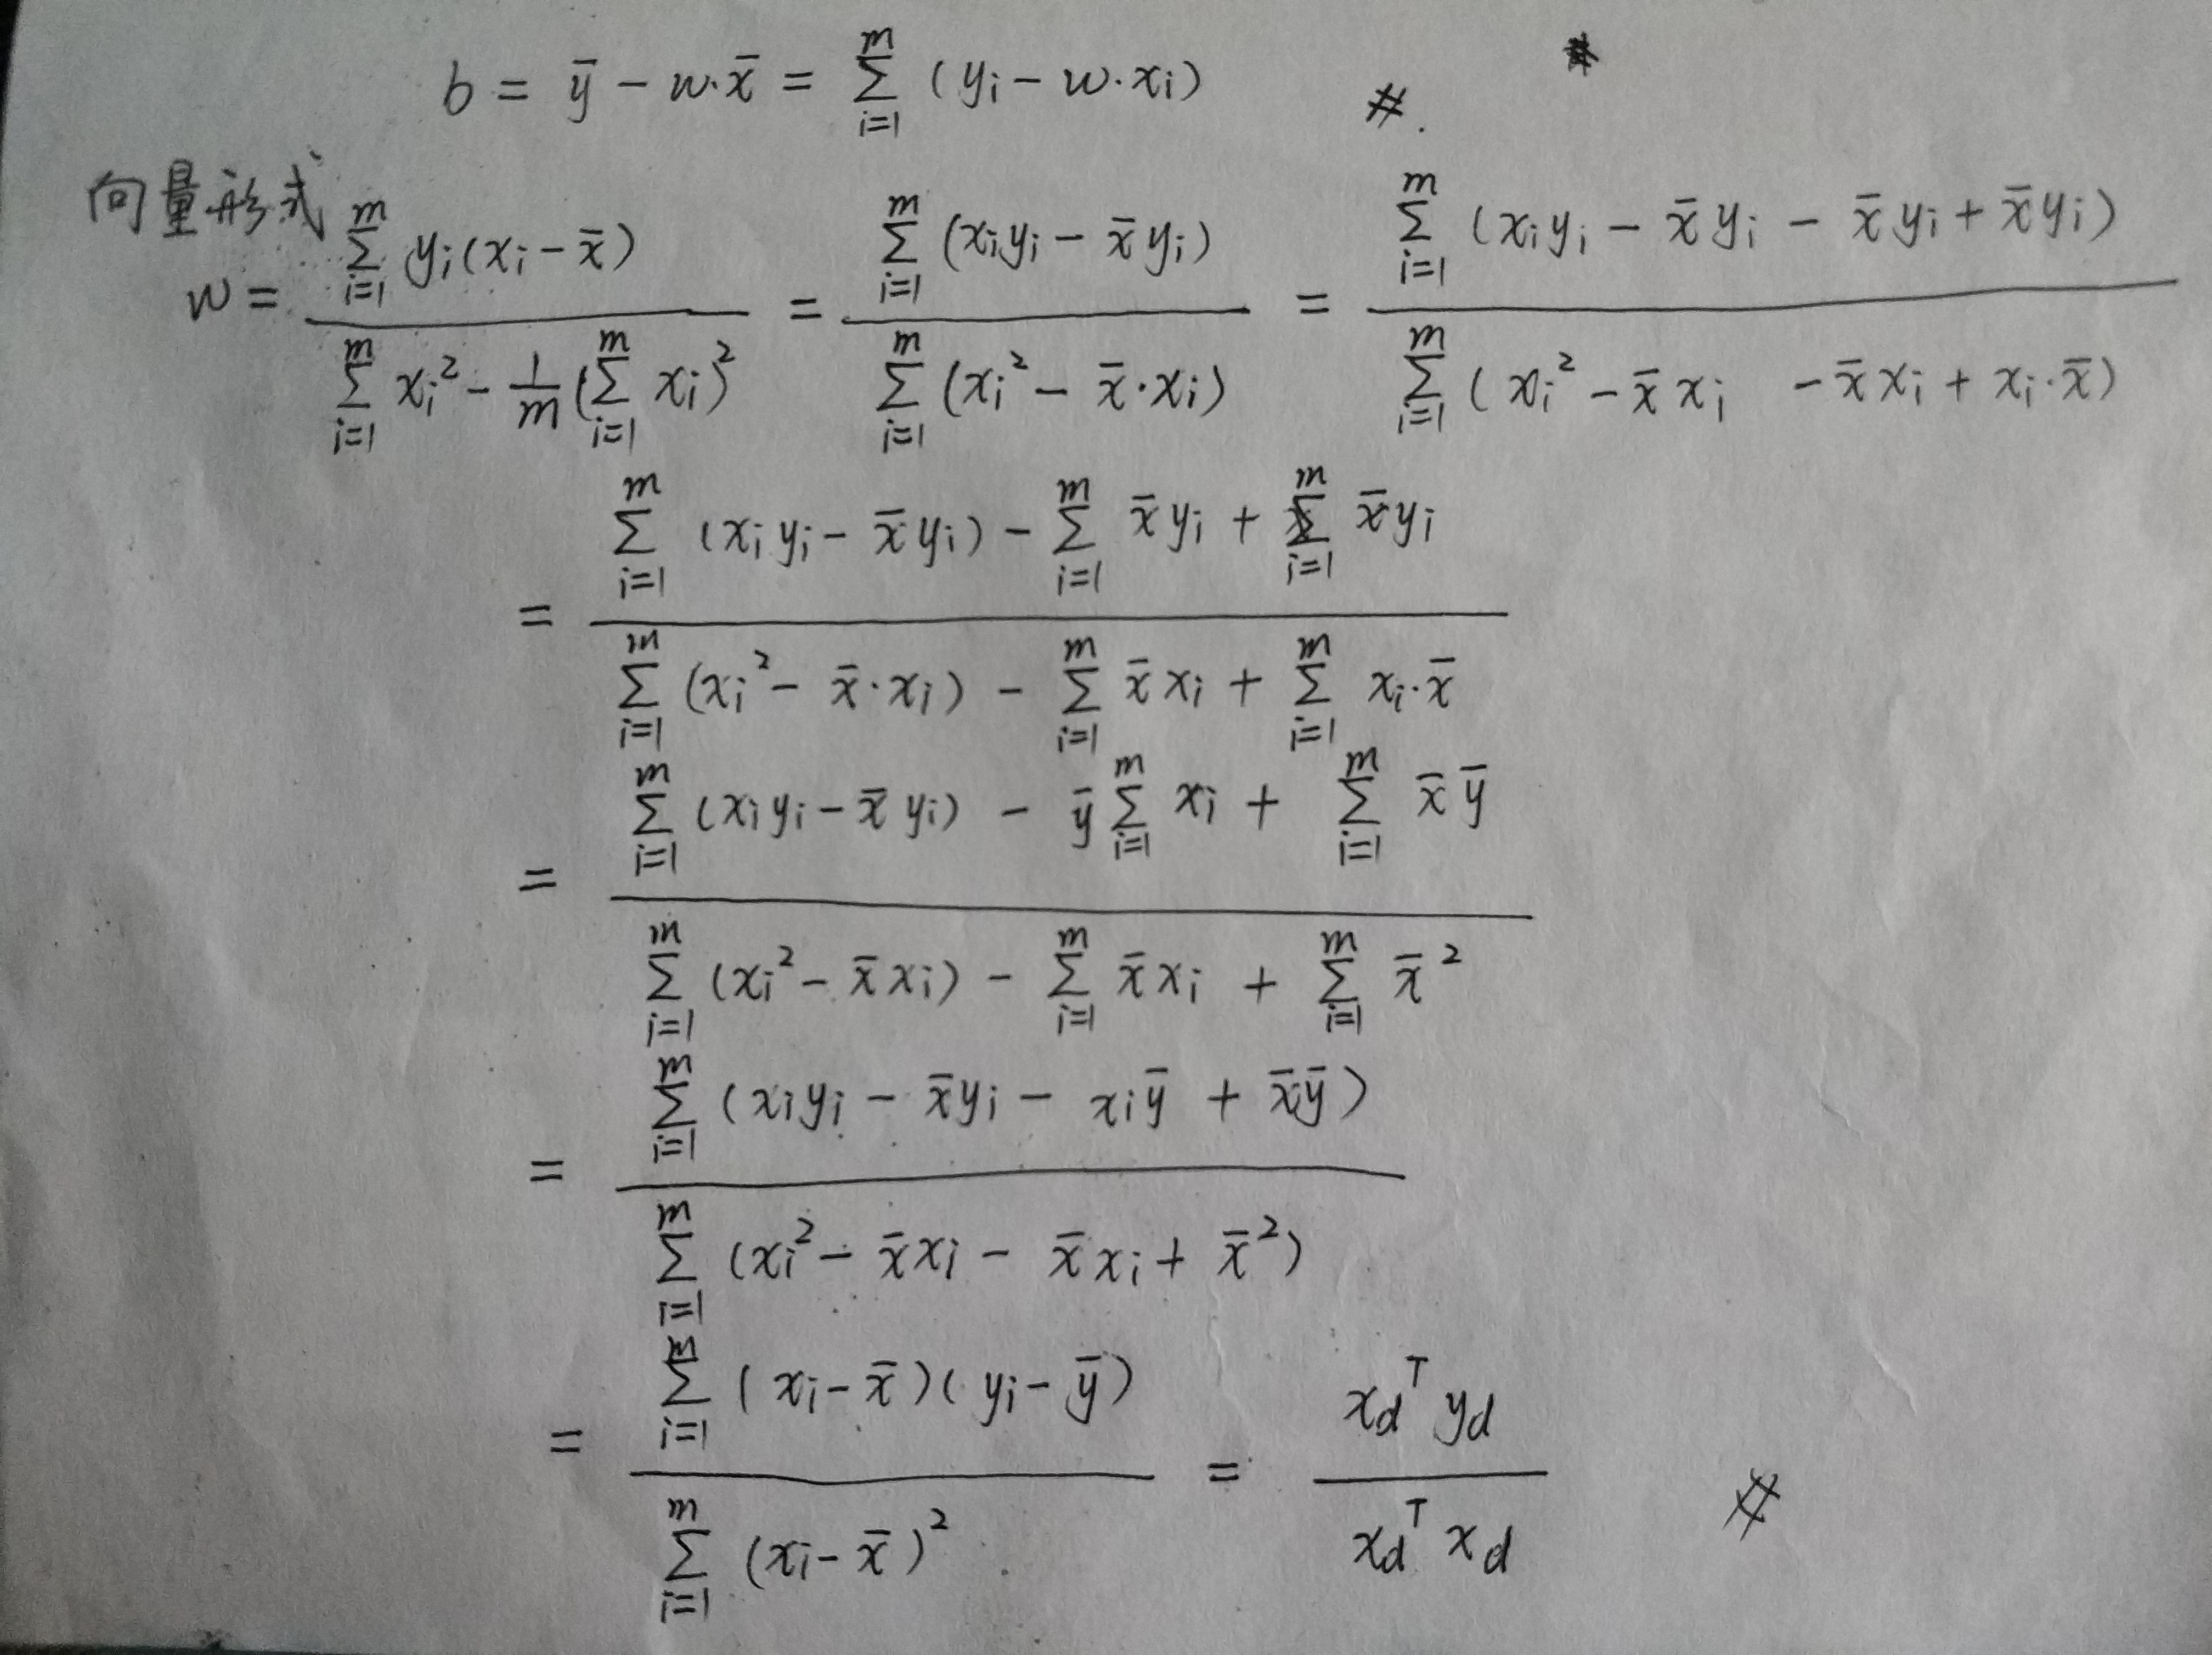 b = ȳ − w·x̄ = ∑_{i=1}^{m} (y_i − w·x_i) #.
向量形式
w = \frac{∑_{i=1}^{m} y_i(x_i − x̄)}{∑_{i=1}^{m} x_i² − \frac{1}{m}(∑_{i=1}^{m} x_i)²} = \frac{∑_{i=1}^{m} (x_i y_i − x̄ y_i)}{∑_{i=1}^{m} (x_i² − x̄·x_i)} = \frac{∑_{i=1}^{m} (x_i y_i − x̄ y_i − x̄ y_i + x̄ y_i)}{∑_{i=1}^{m} (x_i² − x̄ x_i − x̄ x_i + x_i·x̄)}
= \frac{∑_{i=1}^{m} (x_i y_i − x̄ y_i) − ∑_{i=1}^{m} x̄ y_i + ∑_{i=1}^{m} x̄ y_i}{∑_{i=1}^{m} (x_i² − x̄·x_i) − ∑_{i=1}^{m} x̄ x_i + ∑_{i=1}^{m} x_i·x̄}
= \frac{∑_{i=1}^{m} (x_i y_i − x̄ y_i) − ȳ ∑_{i=1}^{m} x_i + ∑_{i=1}^{m} x̄ ȳ}{∑_{i=1}^{m} (x_i² − x̄ x_i) − ∑_{i=1}^{m} x̄ x_i + ∑_{i=1}^{m} x̄²}
= \frac{∑_{i=1}^{m} (x_i y_i − x̄ y_i − x_i ȳ + x̄ ȳ)}{∑_{i=1}^{m} (x_i² − x̄ x_i − x̄ x_i + x̄²)}
= \frac{∑_{i=1}^{m} (x_i − x̄)(y_i − ȳ)}{∑_{i=1}^{m} (x_i − x̄)²} = \frac{x_d^T y_d}{x_d^T x_d} #